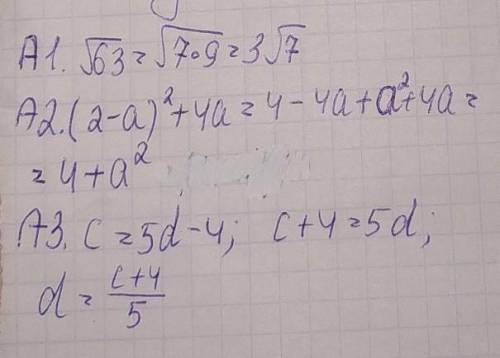 A1. √63 = √7·9 = 3√7
A2. (2-a)² + 4a = 4 - 4a + a² + 4a =
= 4 + a²
A3. c = 5d - 4; c + 4 = 5d;
d = (c+4)/5